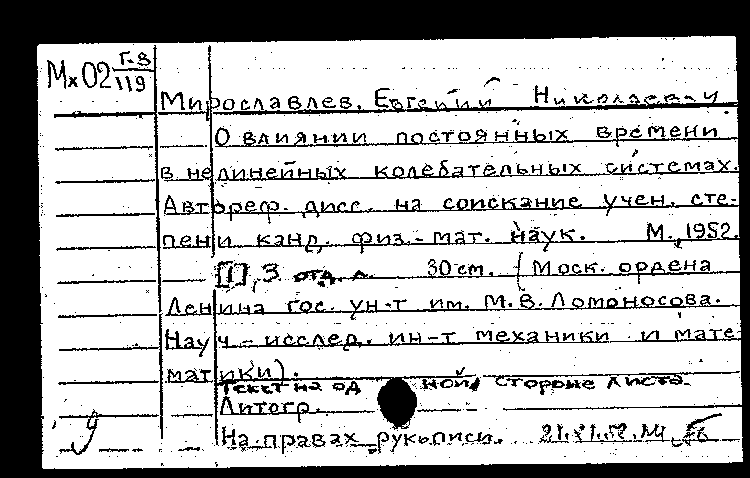 Мх02 Г-8
119
Мирославлев, Евгений Николаевич
О влиянии постоянных времени
в нелинейных колебательных системах.
Автореф. дисс. на соискание учен. сте-
пени канд. физ-мат. наук. М., 1952.
[1], 3 отд. л. 30 см. (Моск. ордена
Ленина гос. ун-т им. М.В. Ломоносова.
Науч-исслед. ин-т механики и мате
матики).
Текст на одной стороне листа.
Литогр.
На правах рукописи.